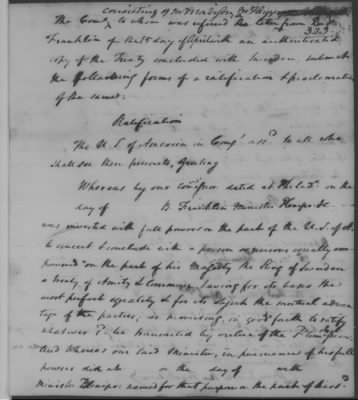 consisting of Mr Madison, Mr
323
The Comee to whom was referred the letter from Dr
Franklin of the 15 day of April with an authenticated
copy of the Treaty concluded with Sweden, submit
the following forms of a ratification & proclamation
of the same:
Ratification
The U. S. of America in Congs assd to all who
shall see these presents, Greeting
Whereas by our Comission dated at Philada on the
day of B Franklin Minister Plenipo &c
was invested with full powers on the part of the U. S. of A.
to concert & conclude with a person or persons equally em
powered on the part of his Majesty the King of Sweden
a treaty of Amity & Commerce, having for its basis the
most perfect equality & for its object the mutual advan
tage of the parties, we promising in good faith to ratify
whatever sd be transacted by virtue of the sd Comission:
And whereas our said Minister, in pursuance of his full
powers did at on the day of with
Minister Plenipo: named for that purpose on the part of his sd